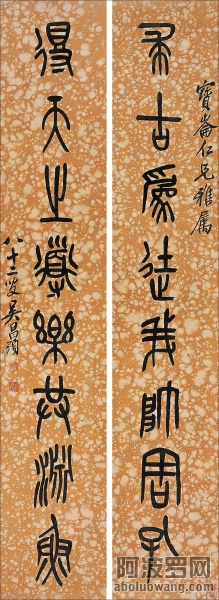 寶崙仁兄雅屬
求古為徒我帥周孔
得天之導樂共淵魚
八十二叟吳昌碩
阿波罗网
aboluowang.com